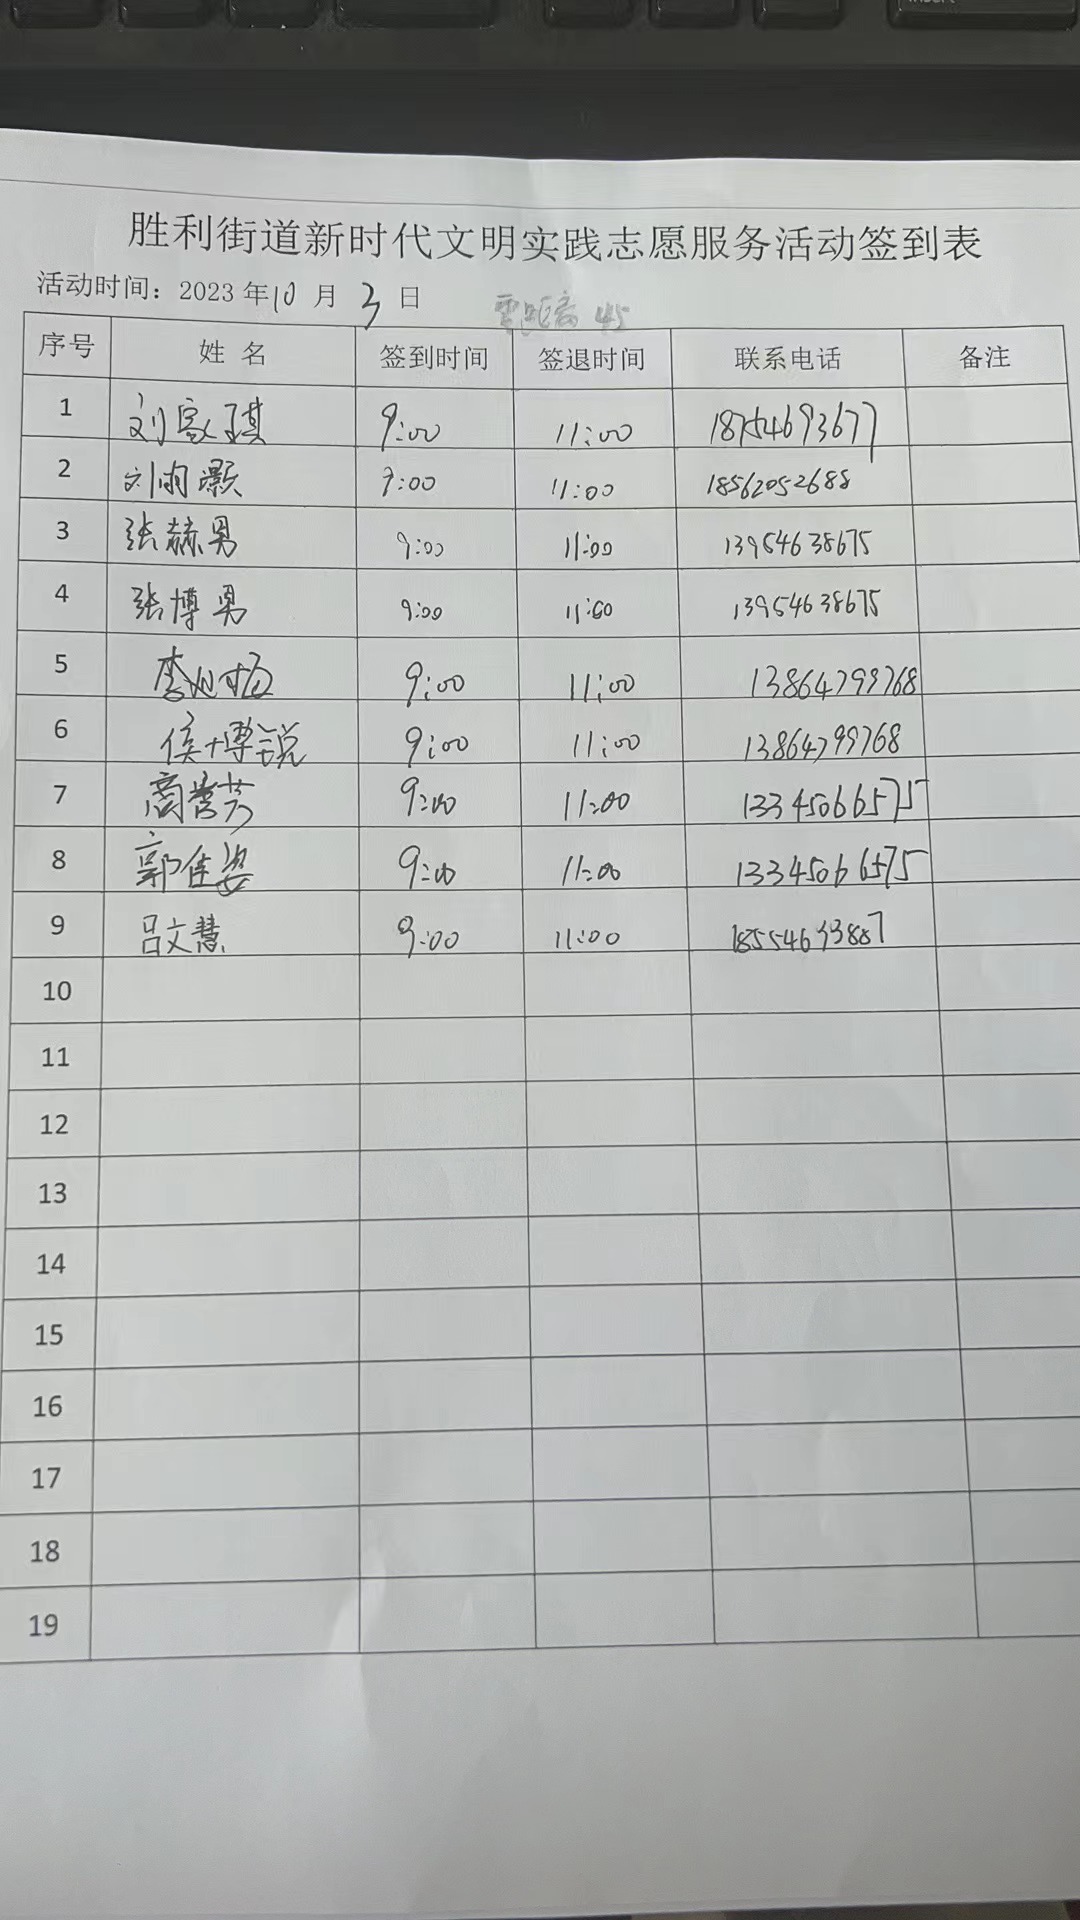 胜利街道新时代文明实践志愿服务活动签到表
活动时间：2023年10月3日
零距离 45
序号 姓名 签到时间 签退时间 联系电话 备注
1 刘家琪 9:00 11:00 18754693677
2 刘雨灏 9:00 11:00 18562052688
3 张赫男 9:00 11:00 13954638675
4 张博男 9:00 11:00 13954638675
5 李 9:00 11:00 13864799768
6 侯博锐 9:00 11:00 13864799768
7 商誉芳 9:00 11:00 13345066575
8 郭佳姿 9:00 11:00 13345066575
9 吕文慧 9:00 11:00 18554633887
10
11
12
13
14
15
16
17
18
19